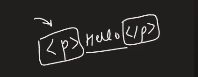 <p> Hello </p>